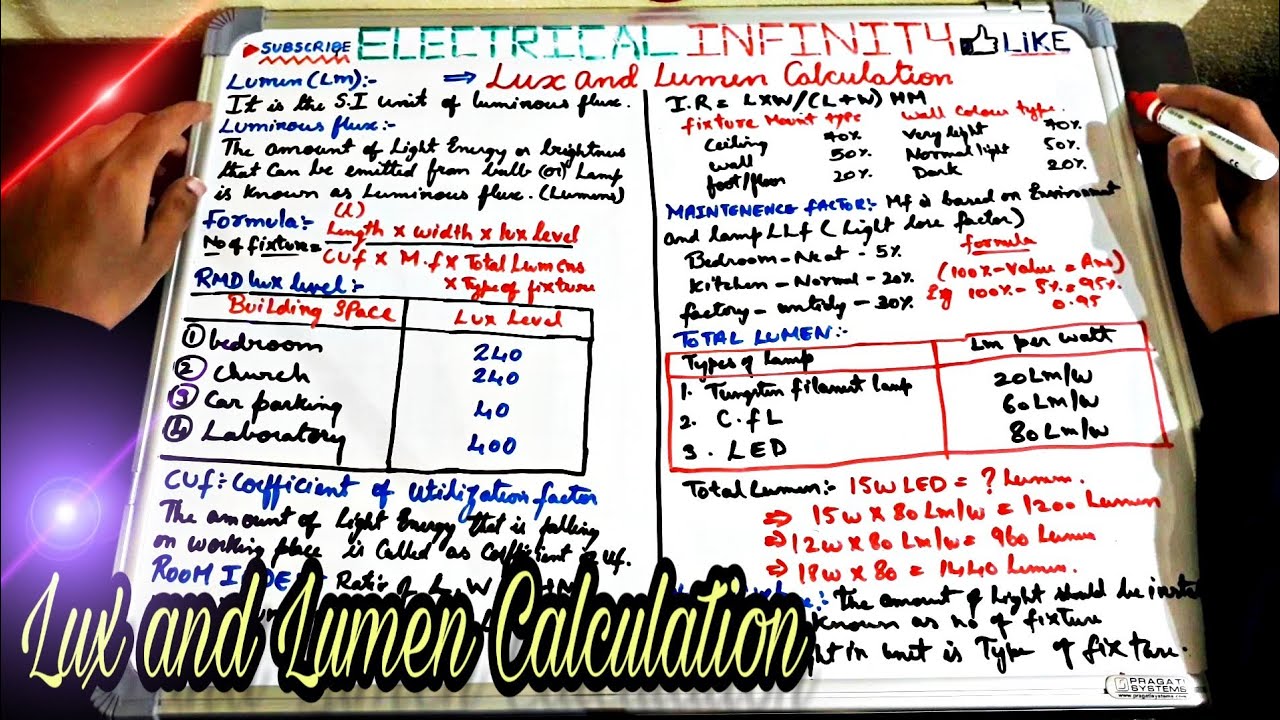 SUBSCRIBE ELECTRICAL INFINITY LIKE
⇒ Lux and Lumen Calculation
Lumen (Lm):-
It is the S.I unit of luminous flux.
Luminous flux:-
The amount of Light Energy or brightness
that Can be emitted from bulb (or) Lamp
is known as Luminous flux. (Lumens)
Formula:- (L)
No of fixture = Length x width x lux level
CUf x M.f x Total Lumens
x Type of fixture
RMD lux level:-
Building Space Lux Level
① bedroom 240
② Church 240
③ Car parking 40
④ Laboratory 400
CUf:- Coefficient of Utilization factor
The amount of Light Energy that is falling
on working place is Called as Coefficient of Uf.
ROOM
I.R = LxW/(L+W) HM
fixture Mount type Wall Colour type.
Ceiling 70% Very light 70%
wall 50% Normal light 50%
foot/floor 20% Dark 20%
MAINTENENCE FACTOR:- Mf is based on Environment
and lamp LLf (Light lose factor)
Bedroom - Neat - 5% formula
Kitchen - Normal - 20% (100% - Value = Ans)
factory - untidy - 30% Eg 100% - 5% = 95%
0.95
TOTAL LUMEN:-
Types of Lamp Lm per watt
1. Tungsten filament lamp 20 Lm/w
2. C.f L 60 Lm/w
3. LED 80 Lm/w
Total Lumen:- 15w LED = ? Lumen.
⇒ 15w x 80 Lm/w = 1200 Lumen
⇒ 12w x 80 Lm/w = 960 Lumen
⇒ 18w x 80 = 1440 Lumen.
:- The amount of Light should be
known as no of fixture
in unit is Type of fixture.
Lux and Lumen Calculation
PRAGATI
SYSTEMS
www.pragatisystems.com